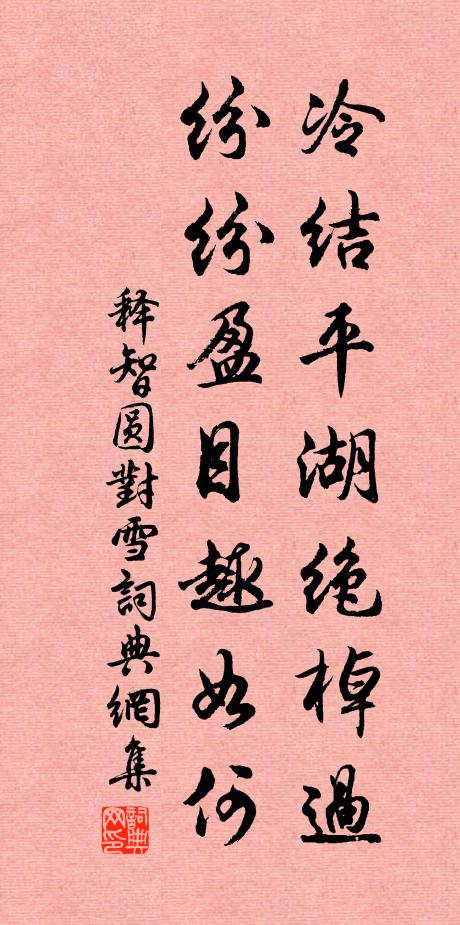 冷结平湖绝棹過
纷纷盈目趣如何
释智圆對雪詞典網集
詞典网印